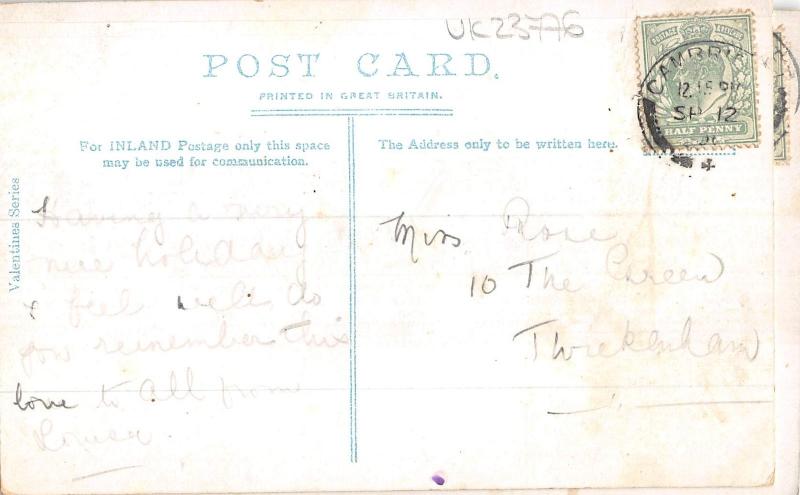 UK23776
POST CARD.
PRINTED IN GREAT BRITAIN.
POSTAGE REVENUE
HALF PENNY
CAMBRI
12.15 PM
SP 12
For INLAND Postage only this space
may be used for communication.
The Address only to be written here.
Valentines Series
Having a very
nice holiday
& feel well do
you remember this
love to all from
Louisa.
Miss Rose
10 The Green
Twickenham